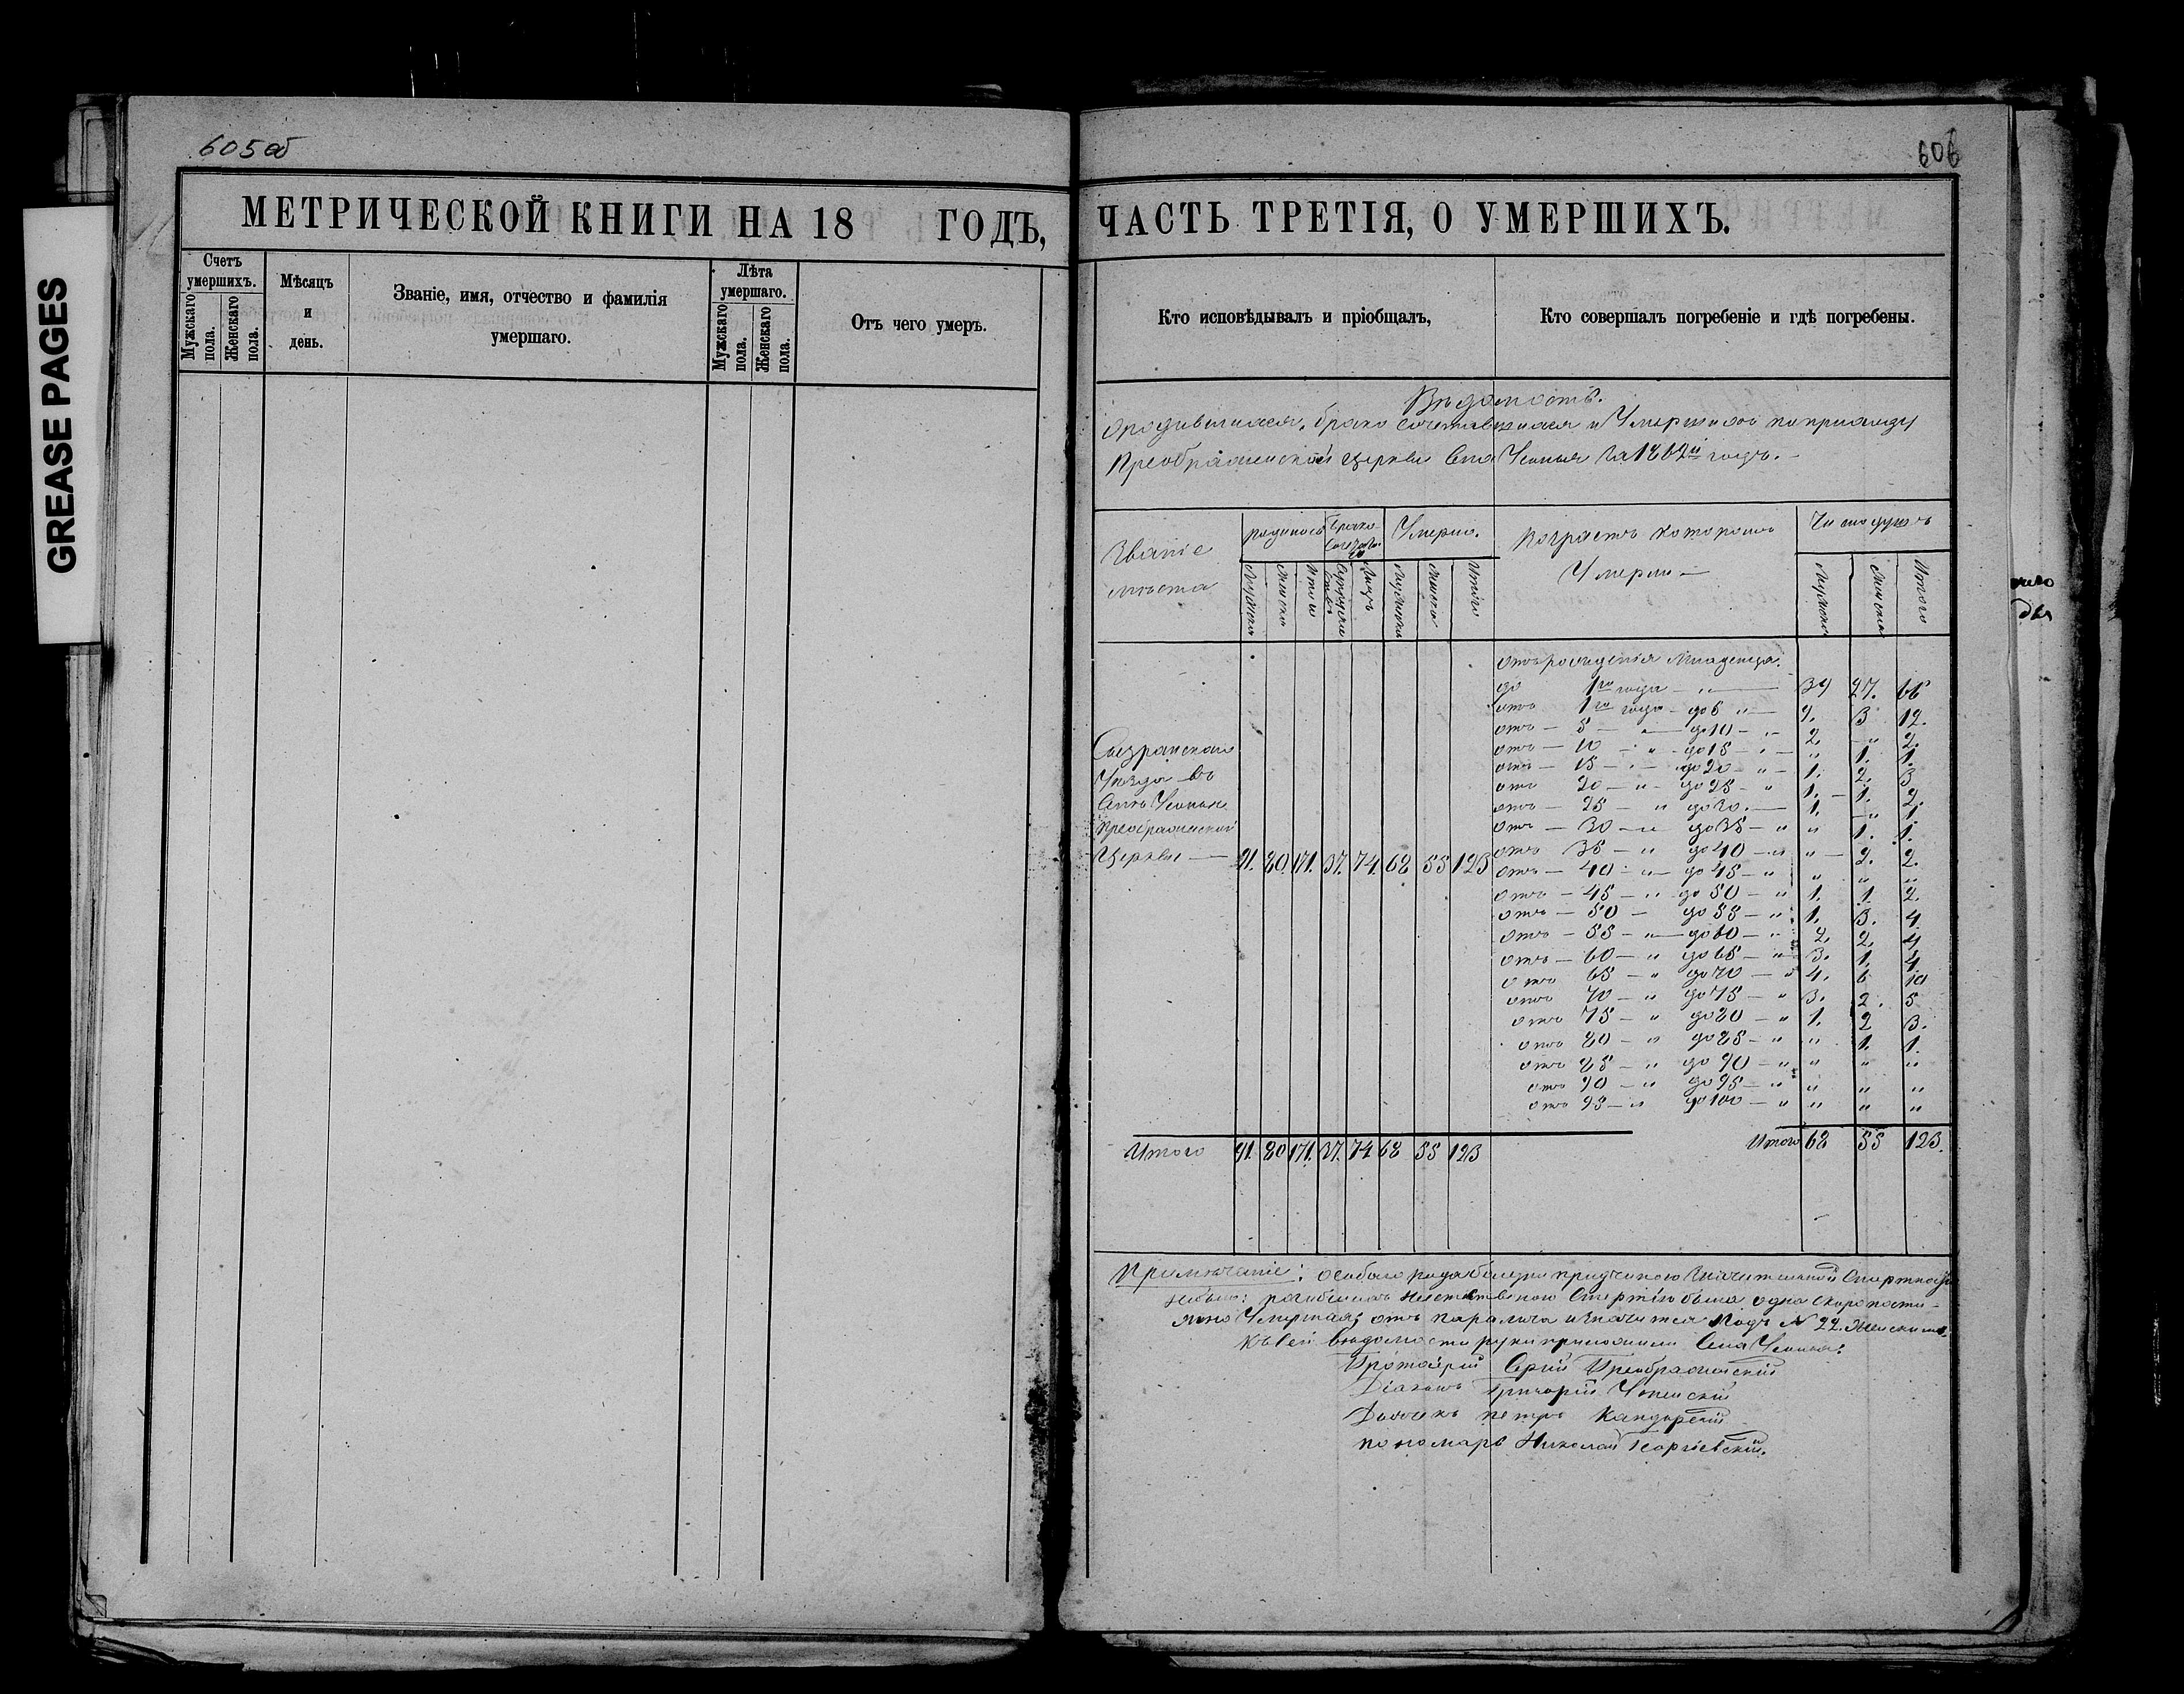 GREASE PAGES
605 об
МЕТРИЧЕСКОЙ КНИГИ НА 18 ГОДЪ,
Счетъ умершихъ.
Мужскаго пола.
Женскаго пола.
Мѣсяцъ и день.
Званіе, имя, отчество и фамилія умершаго.
Лѣта умершаго.
Мужскаго пола.
Женскаго пола.
Отъ чего умеръ.
606
ЧАСТЬ ТРЕТІЯ, О УМЕРШИХЪ.
Кто исповѣдывалъ и пріобщалъ,
Кто совершалъ погребеніе и гдѣ погребены.
Вѣдомость.
о родившихся, брако сочетавшихся и Умершихъ по приходу
Преобраменской Церкви Села на 1862й годъ.
Званіе мѣста
родилось
Умерло.
Мужеска
Женска
Итого
Лицъ
Мужеска
Женска
Итого
возрастъ которыхъ Умерли —
Число душъ
Мужеска
Женска
Итого
отъ рожденія Младенца.
до 1го года — " — 39 27. 66
отъ 1го года — до 5 " — 9. 3 12.
отъ — 5 — " — до 10 — " 2. — " 2.
отъ — 10 — " — до 15 — " — " 1. 1.
отъ — 15 — " — до 20 — " — 1. 2. 3
отъ 20 — " — до 25 — " 1. — 1. 2.
отъ — 25 — " до 30. — 1. — " 1.
отъ — 30 — " до 35 — " " 1. 1.
отъ 35 — " до 40 — " " — 2. 2.
отъ — 40 — " — до 45 — " " " "
отъ — 45 — " — до 50 — " 1. 1. 2.
отъ — 50 — до 55 — " 1. 3. 4
отъ — 55 — " — до 60 — " 2. 2. 4
отъ — 60 — " до 65 — " 3. 1. 4
отъ 65 — " до 70 — " 4. 6 10
отъ 70 — " до 75 — " 3. 2. 5
отъ 75 — " до 80 — " 1. 2 3.
отъ 80 — " до 85 — " " 1. 1.
отъ 85 — " до 90 — " " " "
отъ 90 — " до 95 — " " " "
отъ 95 — " до 100 — " " " "
Сызранскаго
Уѣзда въ
Селѣ
Преображенской
Церкви — 91. 80. 171. 37. 74. 68 55 123
Итого 91. 80 171. 37. 74 68 55 123
Итого 68 55 123.
Примѣчаніе: особаго рода болезни причиною значительной Смертности
небыло: Смертію была одна скоропости-
жно Умершая; отъ паралича и значится подъ № 22. женскимъ.
Къ сей вѣдомости руки приложили Села
Протоіерей Преображенскій
Діаконъ Григорій
Дьячекъ петръ Кандорскій
пономарь Николай Георгіевскій.